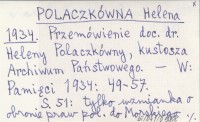 POLACZKÓWNA Helena
1934. Przemówienie doc. dr.
Heleny Polaczkówny, kustosza
Archiwum Państwowego. — W:
Pamięci 1934: 49-57.
S. 51: tylko wzmianka o
obronie praw pol. do